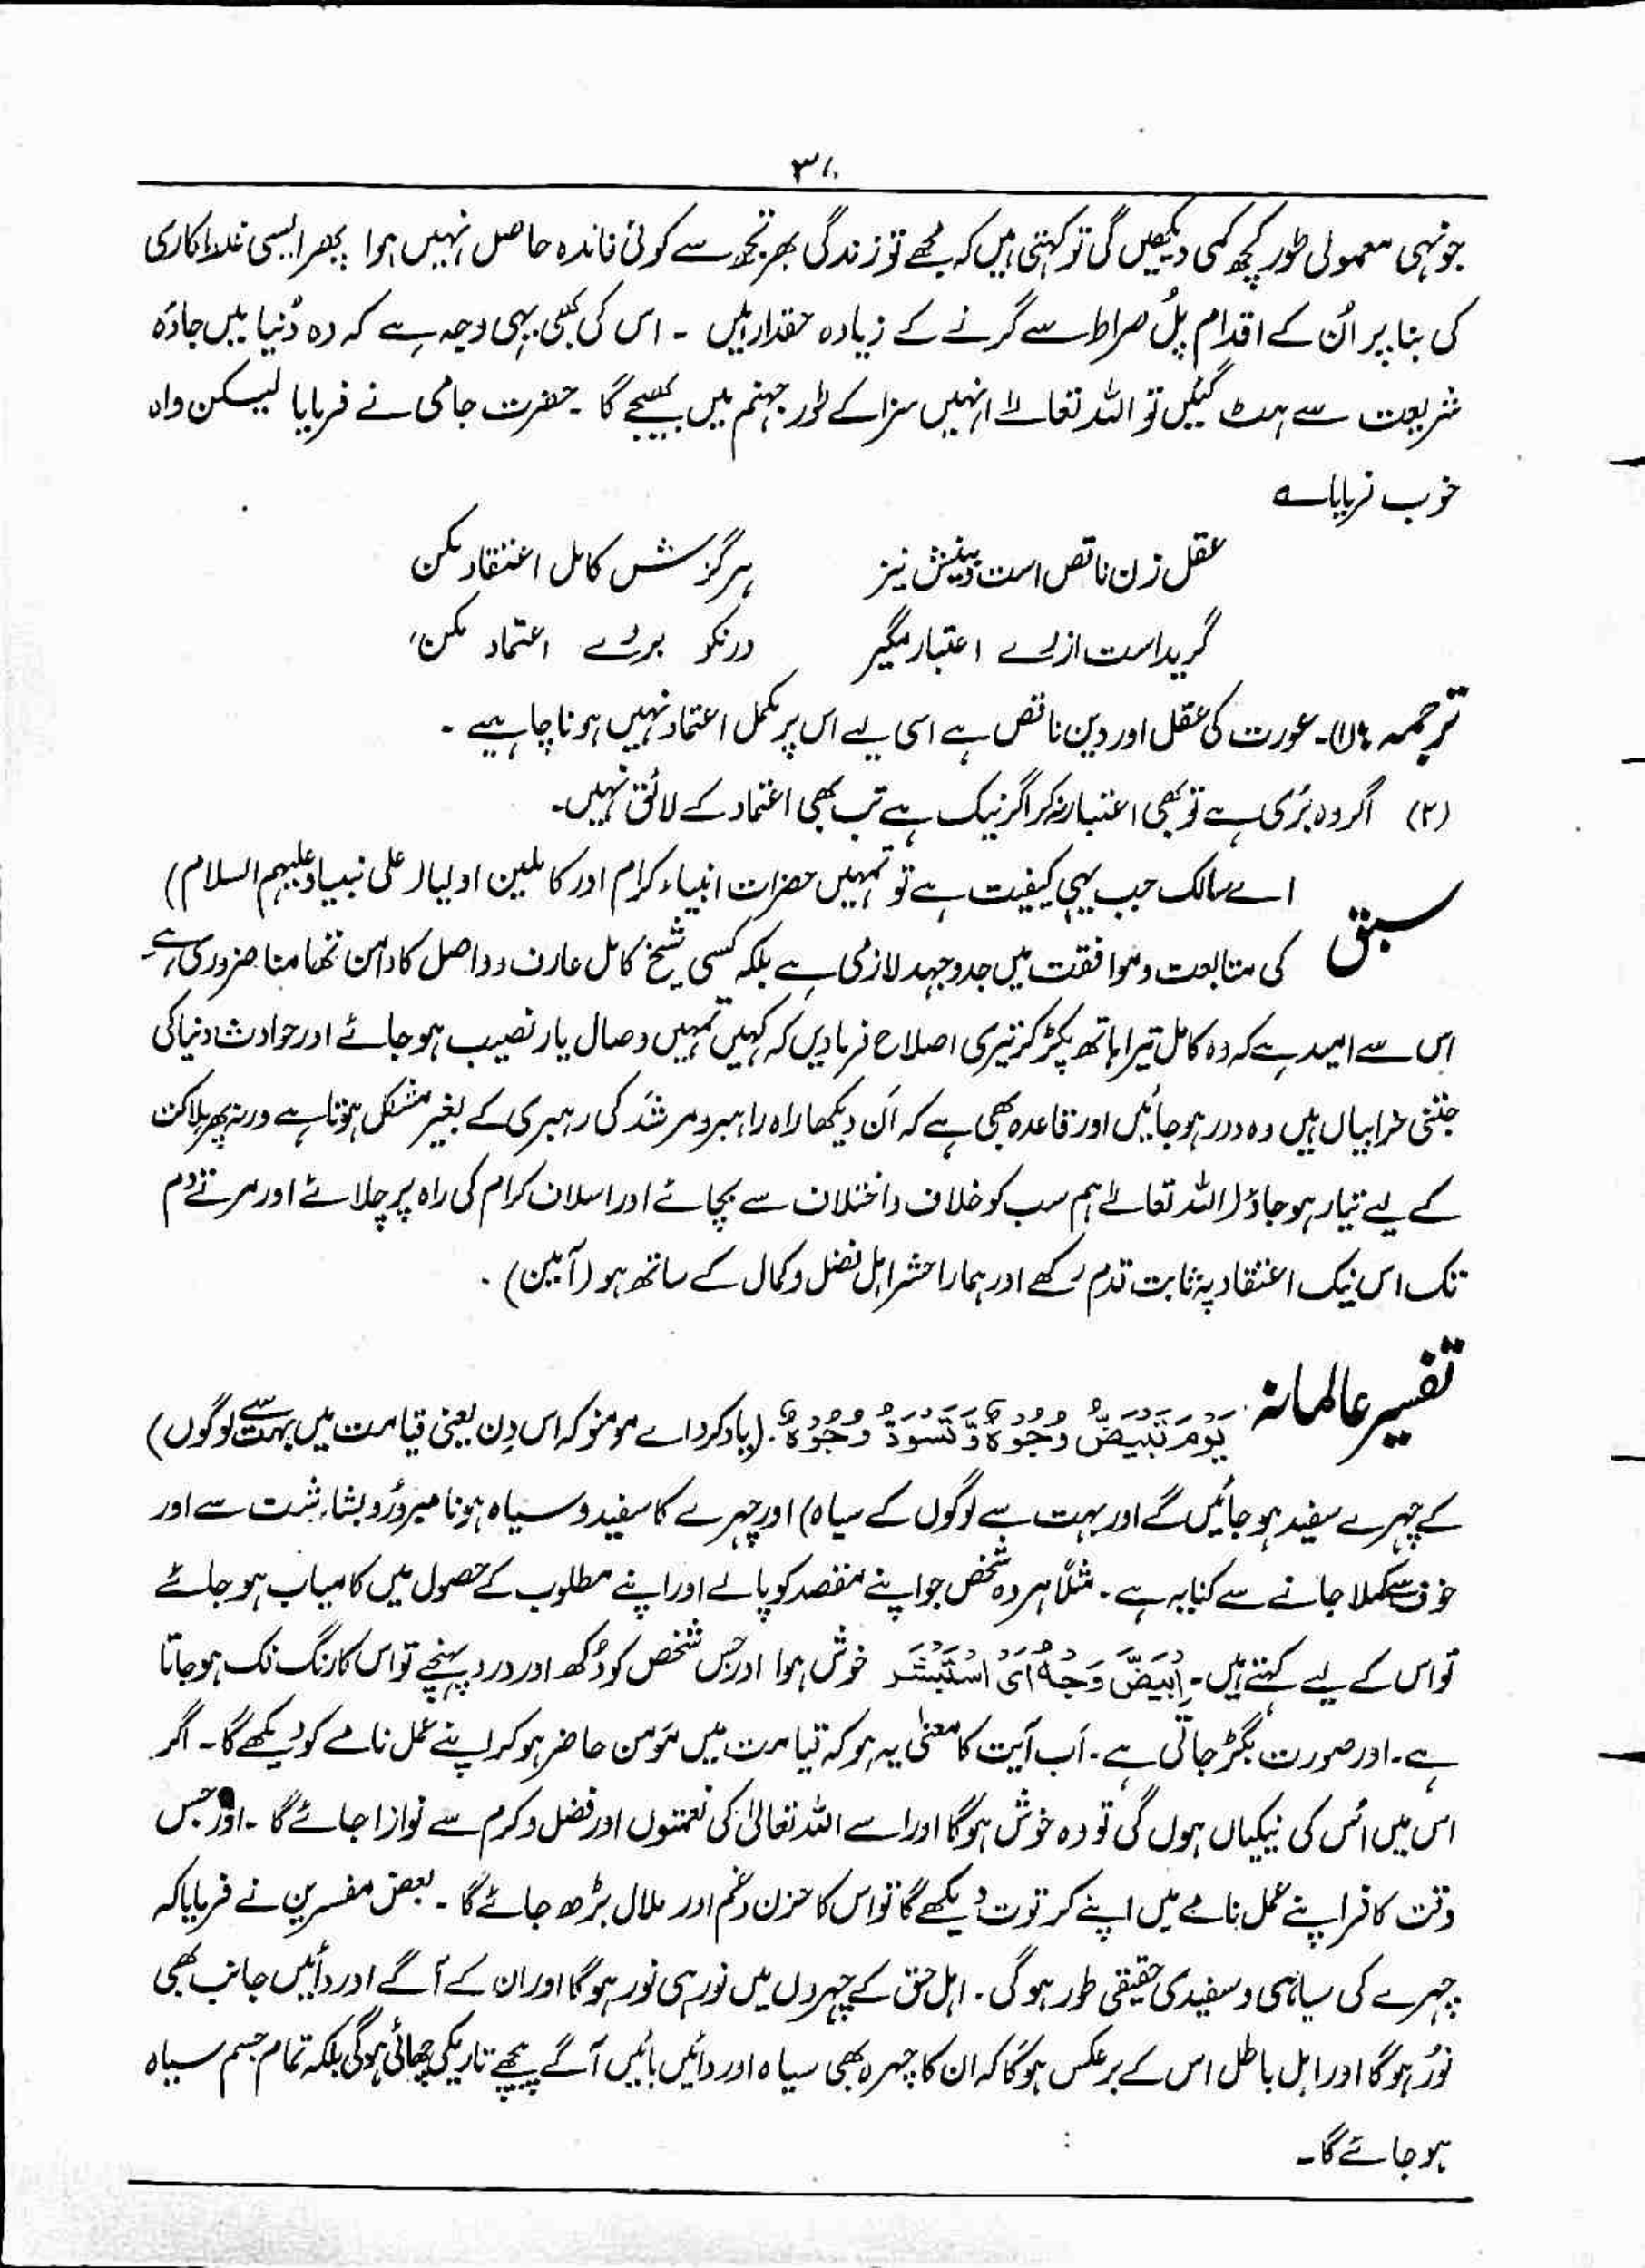 ۳۸
جونہی معمولی طور کچھ کمی دیکھیں گی تو کہتی ہیں کہ مجھے تو زندگی بھر تجھ سے کوئی فائدہ حاصل نہیں ہوا پھر ایسی غلط کاری
کی بنا پر اُن کے اقدام پلُ صراط سے گرنے کے زیادہ حقدار ہیں ۔ اس کی بھی یہی وجہ ہے کہ وہ دُنیا میں جادۂ
شریعت سے ہٹ گئیں تو اللہ تعالےٰ انہیں سزا کے طور جہنم میں بھیجے گا ۔ حضرت جامی نے فرمایا لیکن واہ
خوب فرمایا ؎
عقل زن ناقص است و دینش نیز ہرگزش کامل اعتقاد مکن
گر بد است از وے اعتبار مگیر ور نکو بر وے اعتماد مکن
ترجمہ (۱)۔ عورت کی عقل اور دین ناقص ہے اسی لیے اس پر مکمل اعتماد نہیں ہونا چاہیے ۔
(۲) اگر وہ بُری ہے تو بھی اعتبار نہ کر اگر نیک ہے تب بھی اعتماد کے لائق نہیں۔
سبق اے سالک جب یہی کیفیت ہے تو تمہیں حضرات انبیاء کرام اور کاملین اولیاء (علی نبینا وعلیہم السلام)
کی متابعت و موافقت میں جدوجہد لازمی ہے بلکہ کسی شیخ کامل عارف و واصل کا دامن تھامنا ضروری ہے
اس سے امید ہے کہ وہ کامل تیرا ہاتھ پکڑ کر تیری اصلاح فرمادیں کہ کہیں تمہیں وصال یار نصیب ہو جائے اور حوادث دنیا کی
جتنی خرابیاں ہیں وہ دور ہو جائیں اور قاعدہ بھی ہے کہ اَن دیکھا راہ راہبر و مرشد کی رہبری کے بغیر مشکل ہوتا ہے ورنہ پھر ہلاکت
کے لیے تیار ہو جاؤ (اللہ تعالےٰ ہم سب کو خلاف و اختلاف سے بچائے اور اسلاف کرام کی راہ پر چلائے اور مرتے دم
تک اس نیک اعتقاد پہ ثابت قدم رکھے اور ہمارا حشر اہل فضل و کمال کے ساتھ ہو (آمین) ۔
تفسیر عالمانہ یَوْمَ تَبْیَضُّ وُجُوْہٌ وَّ تَسْوَدُّ وُجُوْہٌ ۔ (یاد کرو اے مومنو کہ اس دِن یعنی قیامت میں بہت سے لوگوں)
کے چہرے سفید ہو جائیں گے اور بہت سے لوگوں کے سیاہ) اور چہرے کا سفید و سیاہ ہونا سرور و بشاشت سے اور
خوف سے کملا جانے سے کنایہ ہے ۔ مثلاً ہر وہ شخص جو اپنے مقصد کو پالے اور اپنے مطلوب کے حصول میں کامیاب ہو جائے
تو اس کے لیے کہتے ہیں ۔ اِبْیَضَّ وَجْہُہٗ اَیْ اسْتَبْشَرَ خوش ہوا اور جس شخص کو دُکھ اور درد پہنچے تو اس کا رنگ فک ہو جاتا
ہے ۔ اور صورت بگڑ جاتی ہے ۔ اَب آیت کا معنیٰ یہ ہو کہ قیامت میں مومن حاضر ہو کر اپنے عمل نامے کو دیکھے گا ۔ اگر
اس میں اُس کی نیکیاں ہوں گی تو وہ خوش ہو گا اور اسے اللہ تعالیٰ کی نعمتوں اور فضل و کرم سے نوازا جائے گا ۔ اور جس
وقت کافر اپنے عمل نامے میں اپنے کرتوت دیکھے گا تو اس کا حزن و غم اور ملال بڑھ جائے گا ۔ بعض مفسرین نے فرمایا کہ
چہرے کی سیاہی و سفیدی حقیقی طور ہو گی ۔ اہل حق کے چہروں میں نور ہی نور ہو گا اور ان کے آگے اور دائیں جانب بھی
نور ہو گا اور اہل باطل اس کے برعکس ہو گا کہ ان کا چہرہ بھی سیاہ اور دائیں بائیں آگے پیچھے تاریکی چھائی ہو گی بلکہ تمام جسم سیاہ
ہو جائے گا ۔